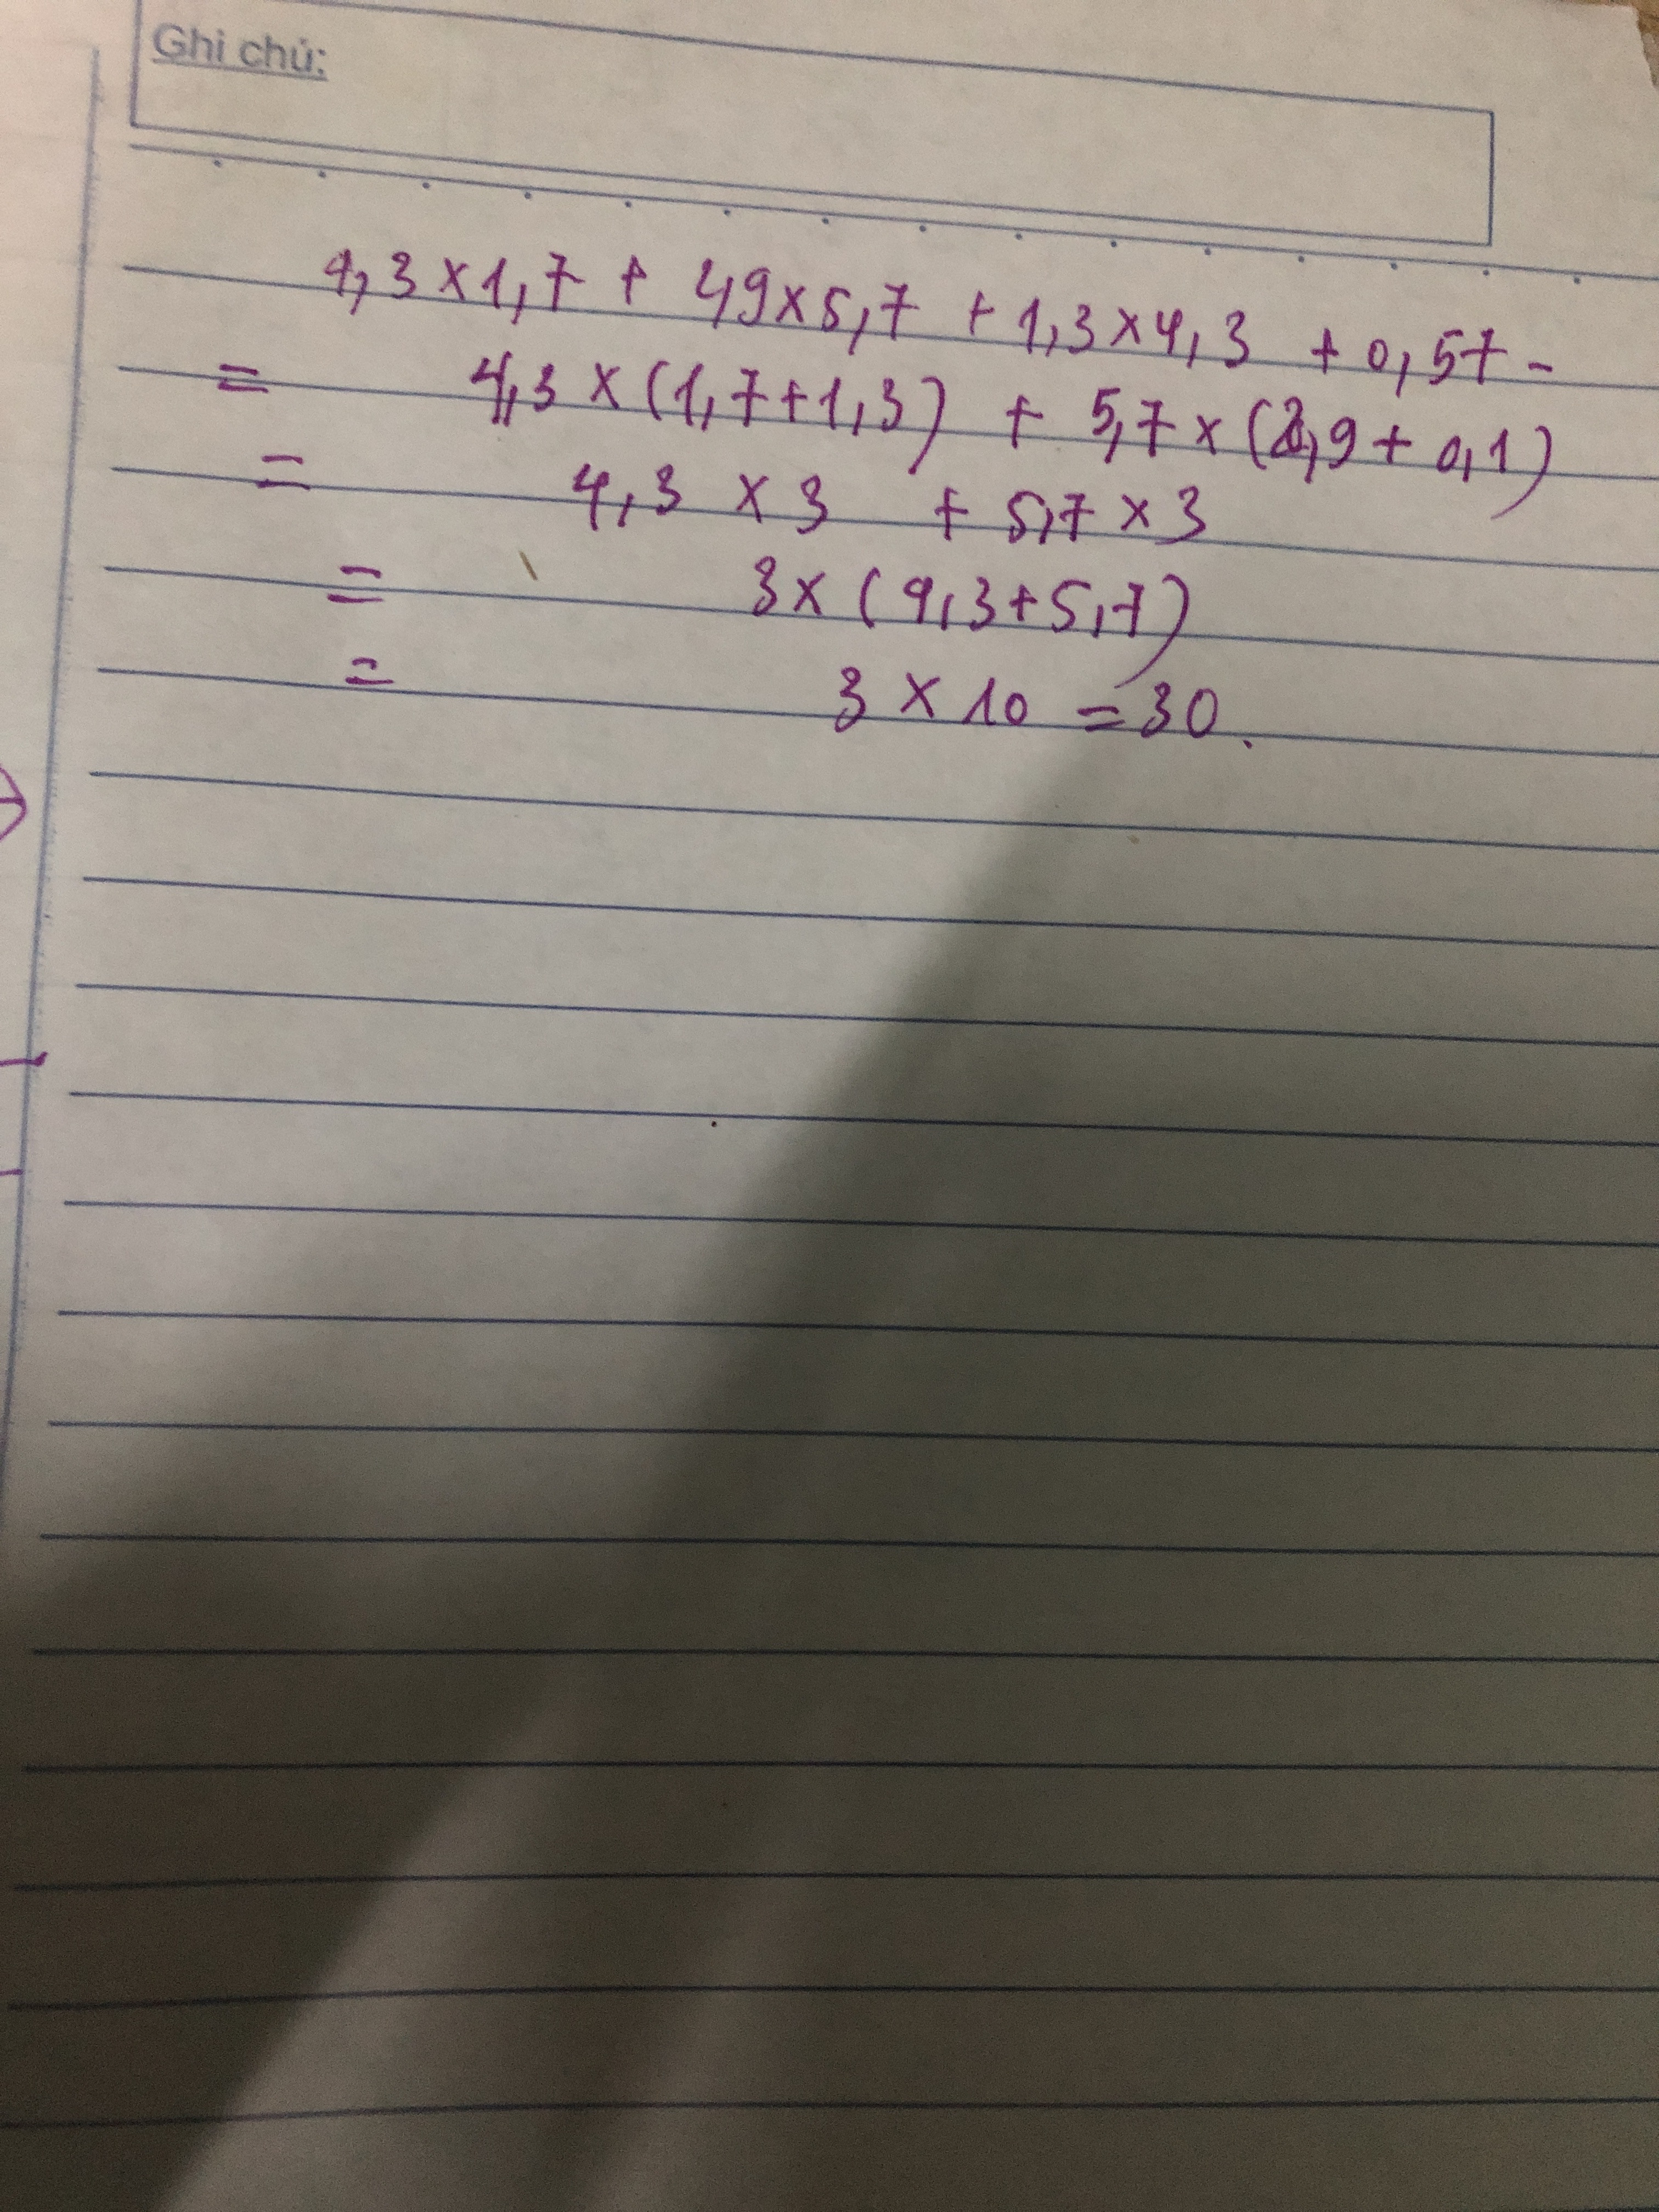 Ghi chú:
4,3 x 1,7 + 4,9 x 5,7 + 1,3 x 4,3 + 0,57 -
= 4,3 x (1,7 + 1,3) + 5,7 x (2,9 + 0,1)
= 4,3 x 3 + 5,7 x 3
= 3 x (4,3 + 5,7)
= 3 x 10 = 30.